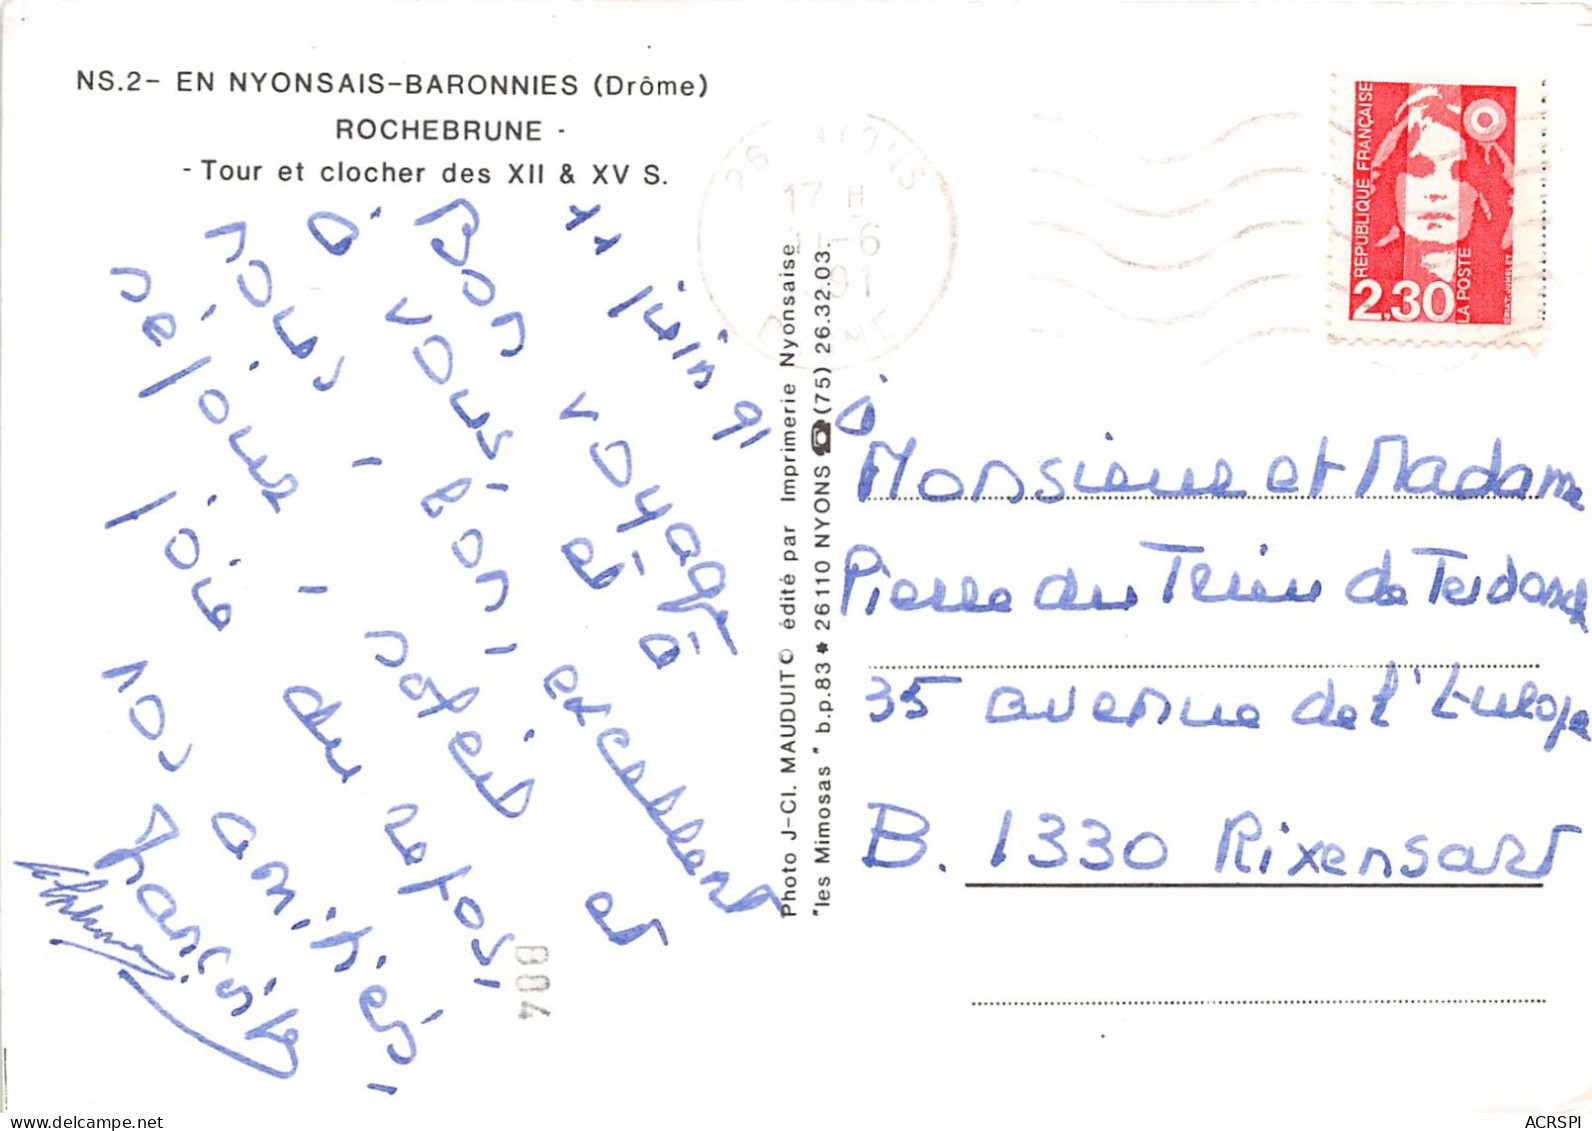 NS.2- EN NYONSAIS-BARONNIES (Drôme)
ROCHEBRUNE -
- Tour et clocher des XII & XV S.
11 juin 91
Bon voyage
à vous et à
nous - bon, excellent
séjour - soleil et
joie du repos,
nos amitiés,
Françoise
Photo J-Cl. MAUDUIT © édité par Imprimerie Nyonsaise
"les Mimosas" b.p.83 * 26110 NYONS ☎ (75) 26.32.03.
26 NYONS
17 H
11-6
91
DRÔME
RÉPUBLIQUE FRANÇAISE
2,30
LA POSTE
à
Monsieur et Madame
Pierre du de
35 avenue de l'Europe
B. 1330 Rixensart
804
delcampe.net
ACRSPI